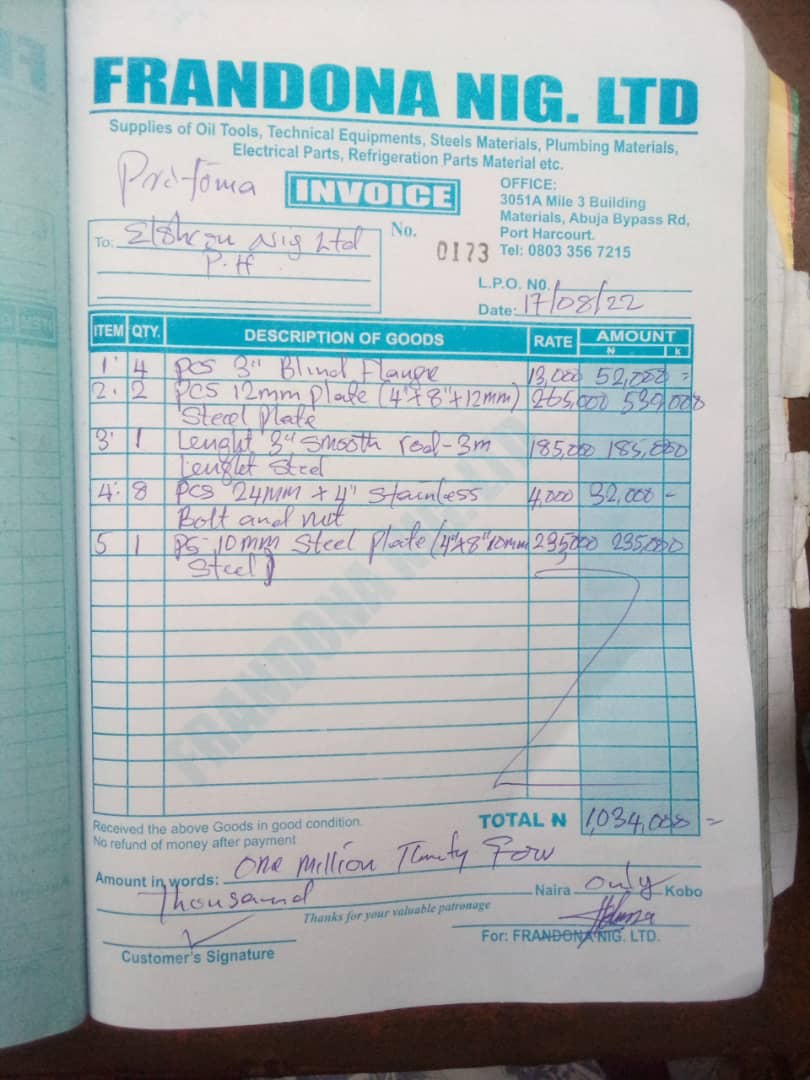 FRANDONA NIG. LTD
Supplies of Oil Tools, Technical Equipments, Steels Materials, Plumbing Materials,
Electrical Parts, Refrigeration Parts Material etc.
INVOICE
OFFICE:
3051A Mile 3 Building
Materials, Abuja Bypass Rd,
Port Harcourt.
Tel: 0803 356 7215
To: Nig Ltd
P.H
No. 0173
L.P.O. NO.
Date: 17/08/22
ITEM QTY. DESCRIPTION OF GOODS RATE AMOUNT
N k
1 4 pcs 3" Blind Flange 13,000 52,000 =
2. 2 pcs 12mm plate (4"x8"x12mm) 265,000 530,000
Steel plate
3 1 Lenght 3" smooth rod-3m 185,000 185,000
lenght Steel
4. 8 pcs 24mm x 4" Stainless 4,000 32,000 -
Bolt and nut
5 1 ps 10mm Steel plate (4"x8"10mm 235,000 235,000
Steel)
Received the above Goods in good condition.
No refund of money after payment
TOTAL N 1,034,000 =
Amount in words: One Million Thirty Four
Thousand Naira Only Kobo
Thanks for your valuable patronage
Customer's Signature
For: FRANDONA NIG. LTD.
FRANDONA NIG. LTD